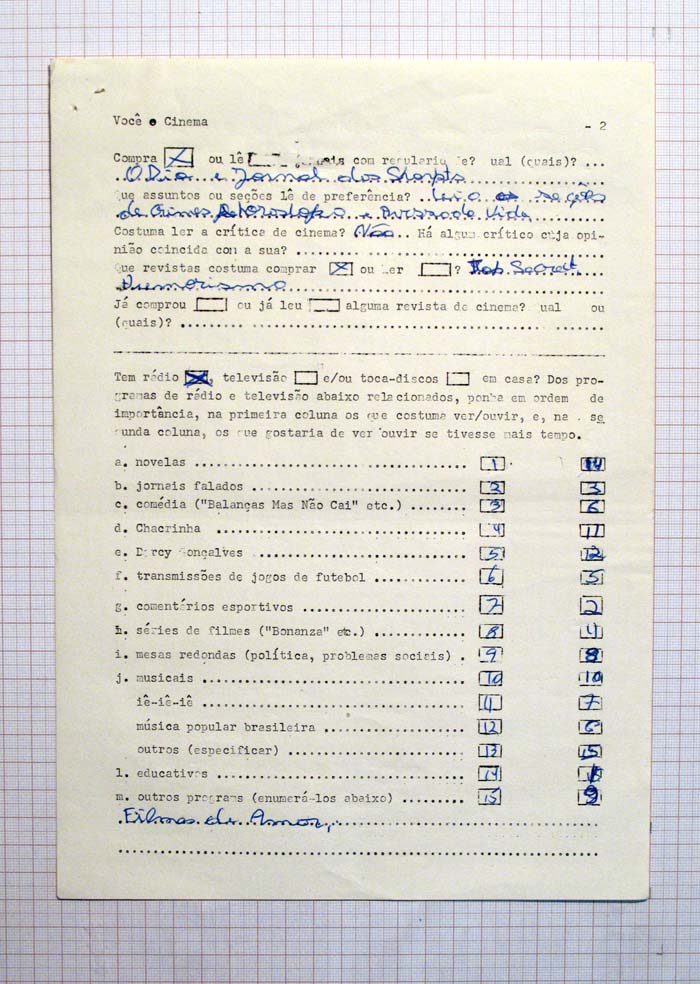 Você e Cinema - 2
Compra X ou lê jornais com regularidade? ual (quais)? ...
O Dia e Jornal dos Sports
Que assuntos ou seções lê de preferência? .. Leio as seções
de Crimes e
Costuma ler a crítica de cinema? Não .. Há algum crítico cuja opi-
nião coincide com a sua? ........................................
Que revistas costuma comprar X ou ler ? Top Secret
Humorismo
Já comprou ou já leu alguma revista de cinema? ual ou
(quais)? ........................................
Tem rádio X, televisão e/ou toca-discos em casa? Dos pro-
gramas de rádio e televisão abaixo relacionados, ponha em ordem de
importância, na primeira coluna os que costuma ver/ouvir, e, na se
gunda coluna, os que gostaria de ver ouvir se tivesse mais tempo.
a. novelas ........................ 1 14
b. jornais falados ........................ 2 3
c. comédia ("Balanças Mas Não Cai" etc.) ........ 3 6
d. Chacrinha ........................ 4 11
e. Dercy Gonçalves ........................ 5 12
f. transmissões de jogos de futebol ............ 6 5
g. comentários esportivos .................... 7 2
h. séries de filmes ("Bonanza" etc.) ............ 8 4
i. mesas redondas (política, problemas sociais) . 9 8
j. musicais ........................ 10 10
iê-iê-iê ........................ 11 7
música popular brasileira .................. 12 6
outros (especificar) ...................... 13 15
l. educativos ........................ 14
m. outros programs (enumerá-los abaixo) ......... 15 9
Filmes de Amor,